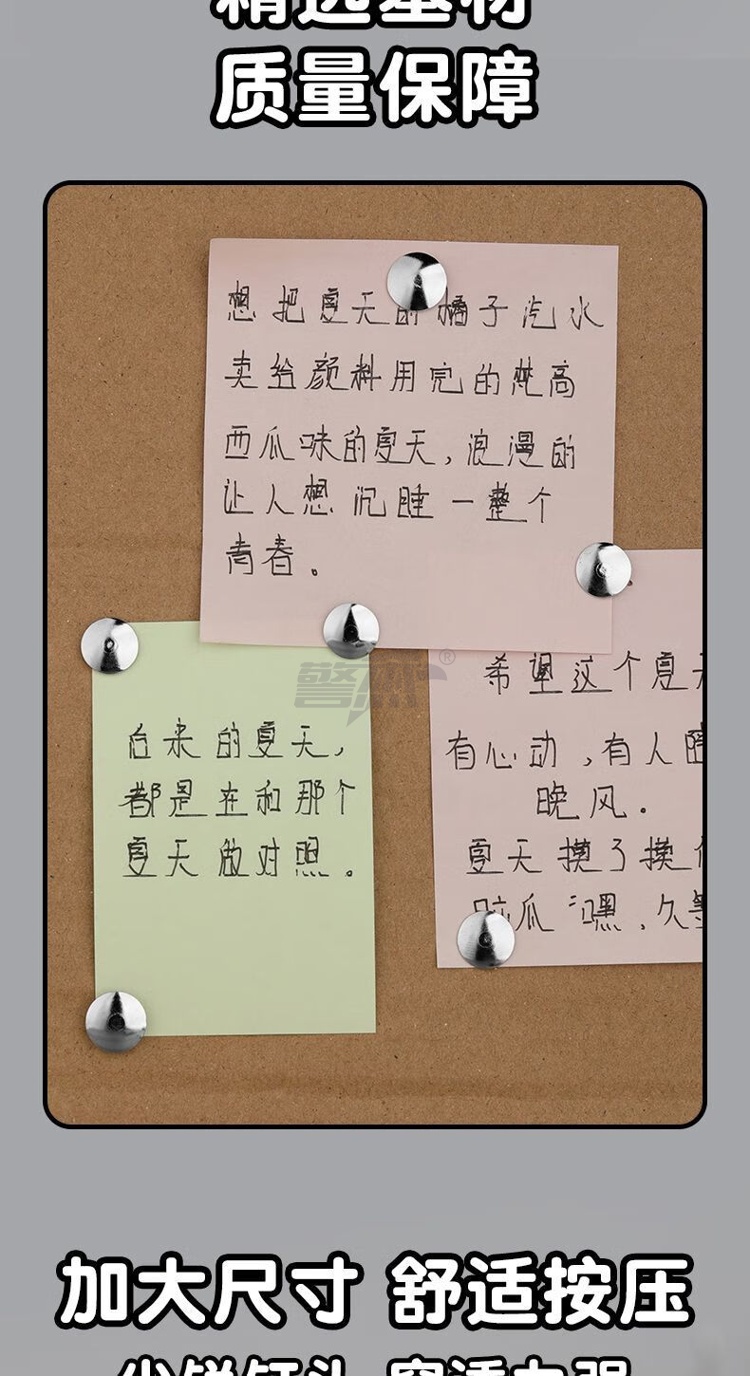 精选基材
质量保障
想把夏天的橘子汽水
卖给颜料用完的梵高
西瓜味的夏天,浪漫的
让人想沉睡一整个
青春。
后来的夏天,
都是在和那个
夏天做对照。
希望这个夏天
有心动,有人陪
晚风。
夏天摸了摸
脑瓜 “嘿,久等
警杰®
加大尺寸 舒适按压
尖锐钉头 穿透力强